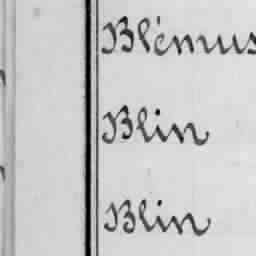 Blémus
Blin
Blin